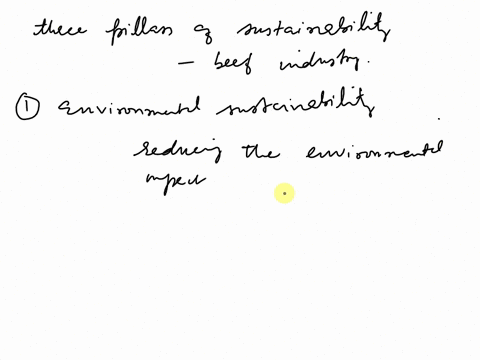 three pillars of sustainability
- beef industry.
① Environmental sustainability
reducing the environmental
impact